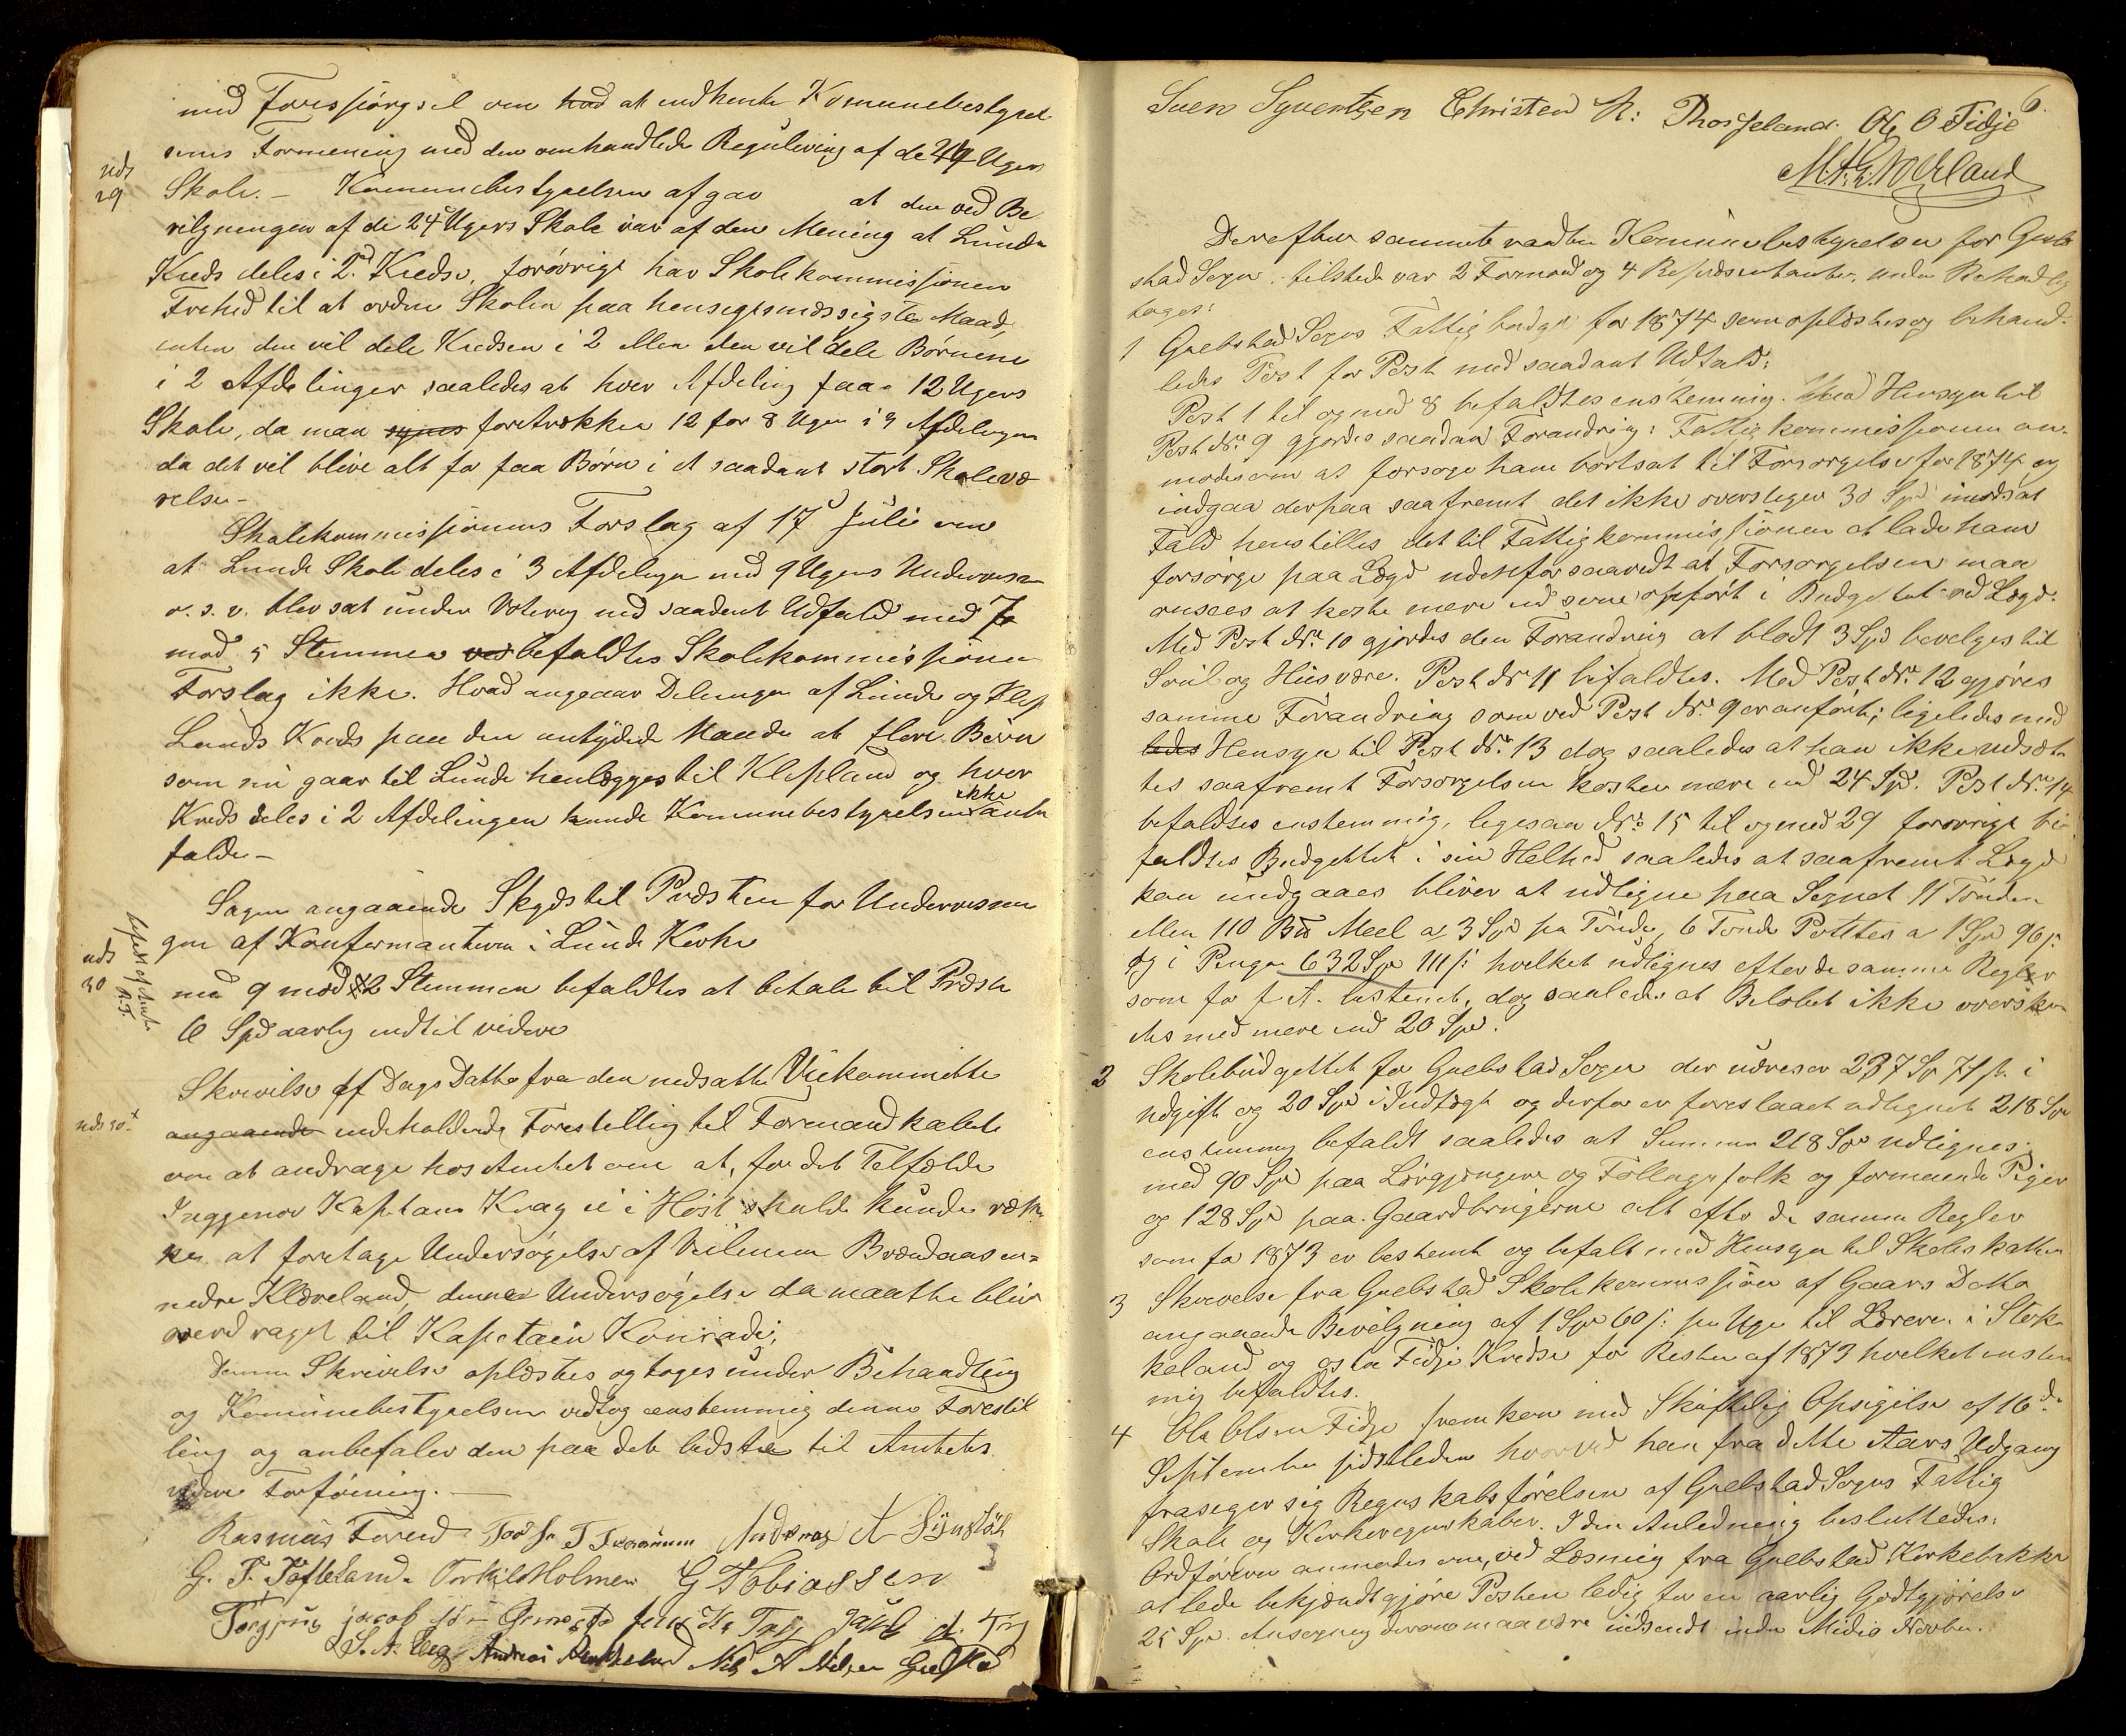 med Forespjørgsel om had at indhente Komunebestyrel
sens Formening med den omhandlede Regulering af de 24 Ugers
uds
29
Skole. - Komunebestyrelsen afgav at den ved Be
vilgningen af de 24 Ugers Skole var af den Mening at Lunde
Kreds deles i 2de Kredse, forøvrigt har Skolekommissjonen
Frihed til at ordne Skolen paa hensigtsmæssigste Maade,
enten den vil dele Kredsen i 2 eller den vil dele Børnene
i 2 Afdelinger saaledes at hver Afdeling faar 12 Ugers
Skole, da man synes foretrækker 12 for 8 Uger i 3 Afdelinger
da det vil blive alt for faa Børn i et saadant stort Skolevæ
relse -
Skolekommissjonens Forslag af 17 Juli om
at Lunde Skole deles i 3 Afdelinger med 9 Ugers Undervisn
o. s. v. blev sat under Votering med saadant Udfald med 7
mod 5 Stemmer ved befaldtes Skolekommissjonens
Forslag ikke. Hvad angaar Delingen af Lunde og Klep
Lands Kreds paa den antydede Maade at flere Børn
som nu gaar til Lunde henlægges til Klepland og hver
Kreds deles i 2 Afdelinger kunde Komunebestyrelsen ikke anbe
falde -
Sagen angaaende Skyds til Præsten for Undervisnin
gen af Konfermanterne i Lunde Kirke
uds
30
med 9 mod 2 Stemmer befaldtes at betale til Præsten
6 Spd aarlig indtil videre
Skrivelse af Dags Datto fra den nedsatte Veikommitte
uds 30
angaaende indeholdende Forestilling til Formandskabet
om at andrage hos Amtet om at, for det Tilfælde
Ingeniør Kaptain Krag ei i Høst skulde kunde række
at foretage Undersøgelse af Veilinien Brændaasen -
nedre Kleveland, denne Undersøgelse da maatte blive
overdraget til Kapetain Konradi;
Denne Skrivelse oplæstes og toges under Behandling
og Komunebestyrelsen vedtog eenstemmig denne Forestil
ling og anbefaler den paa det bedste til Amtets
videre Forføining. -
Rasmus
G. T. Torkild Holmen G Tobiassen
jacob
Andreas Nils A Nilsen
6.
Suen Syvertsen Christen A: Thorsland. Ole O Fidje
Derefter sammentraadte Komunebestyrelsen for Greb
stad Sogn. tilstede var 2 Formænd og 4 Repræsentanter, under Behandling
toges:
1 Grebstad Sogns Fattigbudget for 1874 som oplæstes og behand-
ledes Post for Post med saadant Udfald:
Post 1 til og med 8 befaldtes enstemmig. Med Hensyn til
Post No 9 gjordes saadan Forandring: Fattigkommissjonen an-
modes om at forsøge ham bortsat til Forsørgelse for 1874 og
indgaa derpaa saafremt det ikke overstiger 30 Spd imodsat
Fald henstilles det til Fattigkommissjonen at lade ham
forsørge paa Lægd udenfor saavidt at Forsørgelsen maa
ansees at koste mere end som opført i Budgettet ved Lægd.
Med Post No 10 gjordes den Forandring at blodt 3 Spd bevelges til
Souel og Huusvære. Post No 11 bifaldtes. Med Post No 12 gjøres
samme Forandring som ved Post No 9 er anført; ligeledes med
ledes Hensyn til Post No 13 dog saaledes at han ikke udsæt
tes saafremt Forsørgelsen koster mere end 24 Spd. Post No 14
befaldtes enstemmig, ligesaa No 15 til og med 29 forøvrigt bi
faldtes Budgettet i sin Helhed saaledes at saafremt Lægd
kan undgaaes bliver at udligne paa Sognet 11 Tønder
eller 110 Meel a 3 Spd pr Tønde, 6 Tønde Pottes a 1 Spd 96 s:
og i Penge 632 Spd 111 s: hvilket udlignes efter de samme Regler
som for f A. bestemt, dog saaledes at Beløbet ikke overskri
des med mere end 20 Spd.
2 Skolebudgettet for Grebstad Sogn der udviser 237 Sp 71 s. i
udgift og 20 Spd i Indtægt og derfor er foreslaaet udlignet 218 Spd
enstemmig befaldt saaledes at Summen 218 Spd udlignes;
med 90 Spd paa Lösgjængere og Föllagsfolk og formuende Piger
og 128 Spd paa Gaardbrugerne alt efter de samme Regler
som for 1873 er bestemt og befalt med Hensyn til Skoleskatten
3 Skrivelse fra Grebstad Skolekommissjon af Gaars Datto
angaaende Bevilgning af 1 Spd 60 s: pr Uge til Læreren i Stok
keland og østre Fidje Kredse for Resten af 1873 hvilket enstem
mig befaldtes.
4 Ole Olsen Fidje fremkom med Skriftelig Opsigelse af 16de
September sidstleden hvorved han fra dette Aars Udgang
frasiger sig Regnskabsførelsen af Grebstad Sogns Fattig
Skole og Kirkeregnskaber. I den Anledning besluttedes:
Ordføreren anmodes om, ved Læsning fra Grebstad Kirkebakke
at lede bekjendtgjøre Posten ledig for en aarlig Godtgjørelse
25 Spd. Ansøgning derom maa være indsendt inden Midio Novbr.